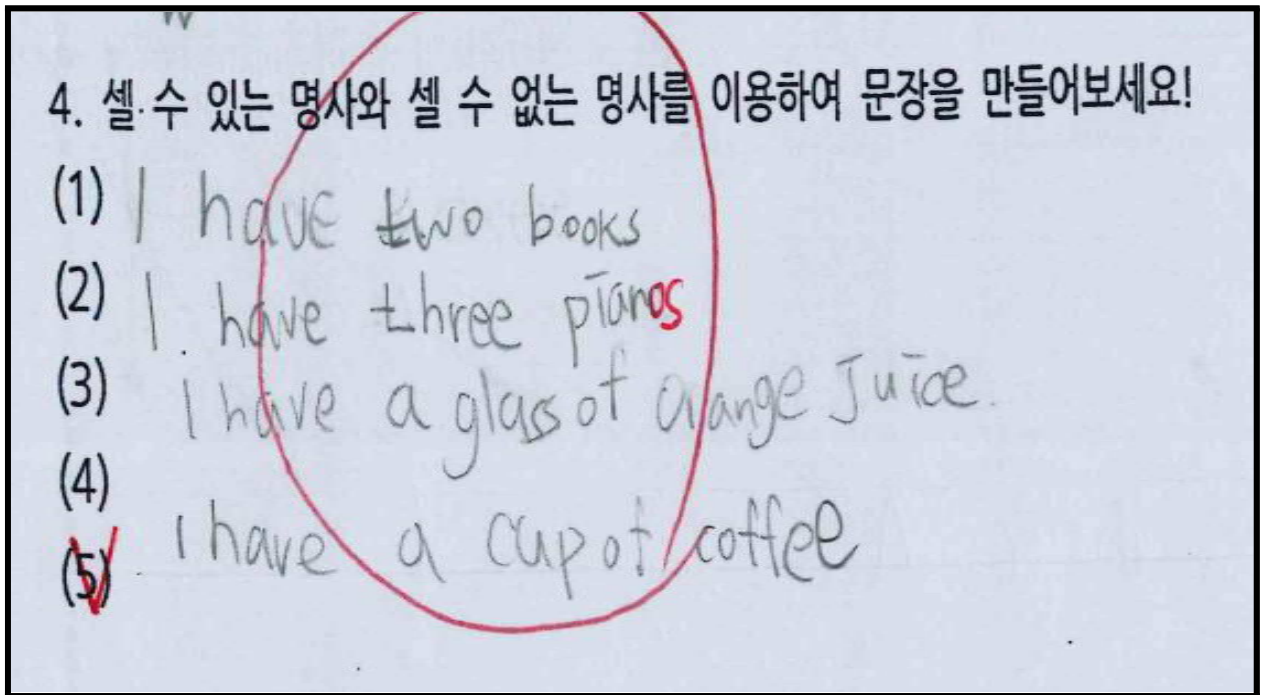 4. 셀 수 있는 명사와 셀 수 없는 명사를 이용하여 문장을 만들어보세요!
(1) I have two books
(2) I have three pianos
(3) I have a glass of orange Juice.
(4)
I have a cup of coffee
(5)